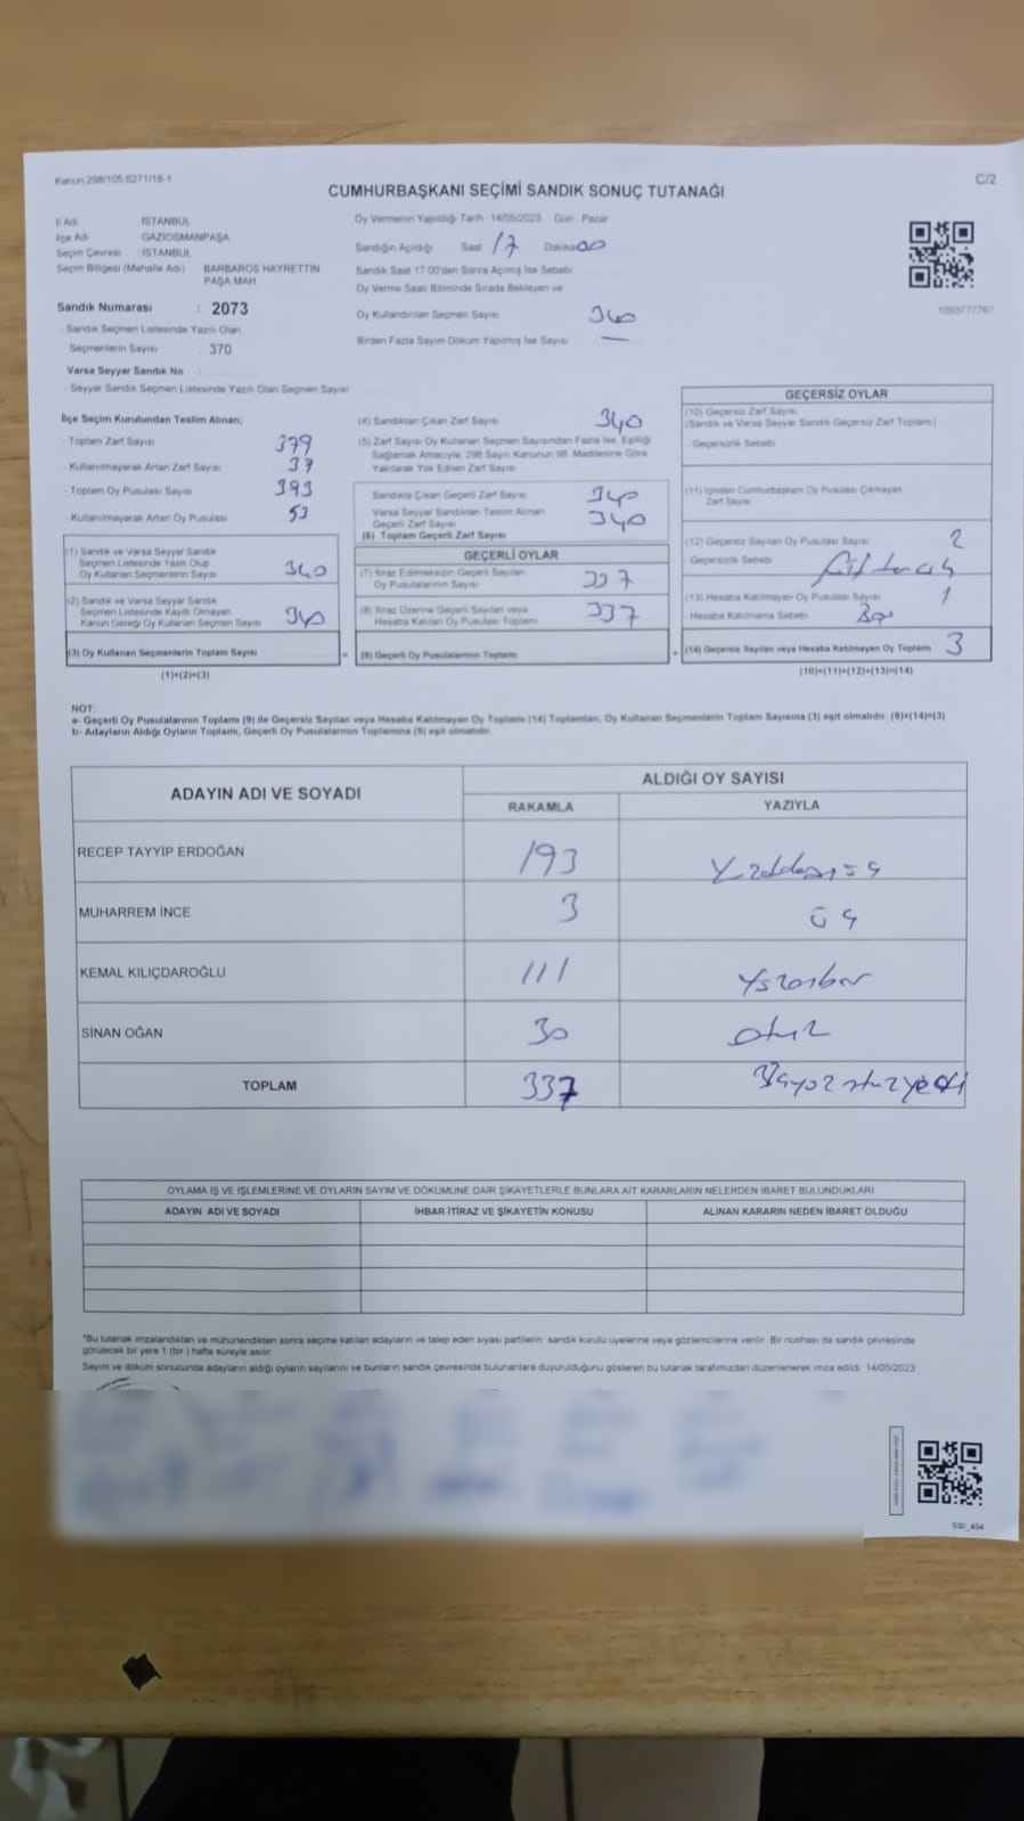 Kanun 298/105 6271/18-1
C/2
CUMHURBAŞKANI SEÇİMİ SANDIK SONUÇ TUTANAĞI
İl Adı İSTANBUL
İlçe Adı GAZİOSMANPAŞA
Seçim Çevresi İSTANBUL
Seçim Bölgesi (Mahalle Adı) BARBAROS HAYRETTİN PAŞA MAH
Sandık Numarası : 2073
Sandık Seçmen Listesinde Yazılı Olan
Seçmenlerin Sayısı 370
Varsa Seyyar Sandık No
Seyyar Sandık Seçmen Listesinde Yazılı Olan Seçmen Sayısı
Oy Vermenin Yapıldığı Tarih 14/05/2023 Gün Pazar
Sandığın Açıldığı Saat 17 Dakika 00
Sandık Saat 17.00'den Sonra Açılmış İse Sebebi
Oy Verme Saati Bitiminde Sırada Bekleyen ve
Oy Kullandırılan Seçmen Sayısı 340
Birden Fazla Sayım Döküm Yapılmış İse Sayısı —
İlçe Seçim Kurulundan Teslim Alınan;
Toplam Zarf Sayısı 379
Kullanılmayarak Artan Zarf Sayısı 37
Toplam Oy Pusulası Sayısı 393
Kullanılmayarak Artan Oy Pusulası 53
(1) Sandık ve Varsa Seyyar Sandık
Seçmen Listesinde Yazılı Olup
Oy Kullanan Seçmenlerin Sayısı 340
(2) Sandık ve Varsa Seyyar Sandık
Seçmen Listesinde Kayıtlı Olmayan
Kanun Gereği Oy Kullanan Seçmen Sayısı 340
(3) Oy Kullanan Seçmenlerin Toplam Sayısı
(1)+(2)=(3)
(4) Sandıktan Çıkan Zarf Sayısı 340
(5) Zarf Sayısı Oy Kullanan Seçmen Sayısından Fazla İse, Eşitliği
Sağlamak Amacıyla, 298 Sayılı Kanunun 98. Maddesine Göre
Yakılarak Yok Edilen Zarf Sayısı
Sandıkta Çıkan Geçerli Zarf Sayısı 340
Varsa Seyyar Sandıktan Teslim Alınan
Geçerli Zarf Sayısı 340
(6) Toplam Geçerli Zarf Sayısı
GEÇERLİ OYLAR
(7) İtiraz Edilmeksizin Geçerli Sayılan
Oy Pusulalarının Sayısı 337
(8) İtiraz Üzerine Geçerli Sayılan veya
Hesaba Katılan Oy Pusulası Toplamı 337
(9) Geçerli Oy Pusulalarının Toplamı
GEÇERSİZ OYLAR
(10) Geçersiz Zarf Sayısı
(Sandık ve Varsa Seyyar Sandık Geçersiz Zarf Toplamı)
Geçersizlik Sebebi
(11) İçinden Cumhurbaşkanı Oy Pusulası Çıkmayan
Zarf Sayısı
(12) Geçersiz Sayılan Oy Pusulası Sayısı 2
Geçersizlik Sebebi
(13) Hesaba Katılmayan Oy Pusulası Sayısı 1
Hesaba Katılmama Sebebi
(14) Geçersiz Sayılan veya Hesaba Katılmayan Oy Toplamı 3
(10)+(11)+(12)+(13)=(14)
NOT:
a- Geçerli Oy Pusulalarının Toplamı (9) ile Geçersiz Sayılan veya Hesaba Katılmayan Oy Toplamı (14) Toplamları, Oy Kullanan Seçmenlerin Toplam Sayısına (3) eşit olmalıdır. (9)+(14)=(3)
b- Adayların Aldığı Oyların Toplamı, Geçerli Oy Pusulalarının Toplamına (9) eşit olmalıdır.
ADAYIN ADI VE SOYADI ALDIĞI OY SAYISI
RAKAMLA YAZIYLA
RECEP TAYYİP ERDOĞAN 193
MUHARREM İNCE 3 üç
KEMAL KILIÇDAROĞLU 111
SİNAN OĞAN 30 otuz
TOPLAM 337 üçyüzotuzyedi
OYLAMA İŞ VE İŞLEMLERİNE VE OYLARIN SAYIM VE DÖKÜMÜNE DAİR ŞİKAYETLERLE BUNLARA AİT KARARLARIN NELERDEN İBARET BULUNDUKLARI
ADAYIN ADI VE SOYADI İHBAR İTİRAZ VE ŞİKAYETİN KONUSU ALINAN KARARIN NEDEN İBARET OLDUĞU
*Bu tutanak imzalandıktan ve mühürlendikten sonra seçime katılan adayların ve talep eden siyasi partilerin sandık kurulu üyelerine veya gözlemcilerine verilir. Bir nüshası da sandık çevresinde
görülecek bir yere 1 (bir) hafta süreyle asılır.
Sayım ve döküm sonucunda adayların aldığı oyların sayılarını ve bunların sandık çevresinde bulunanlara duyurulduğunu gösteren bu tutanak tarafımızdan düzenlenerek imza edildi. 14/05/2023